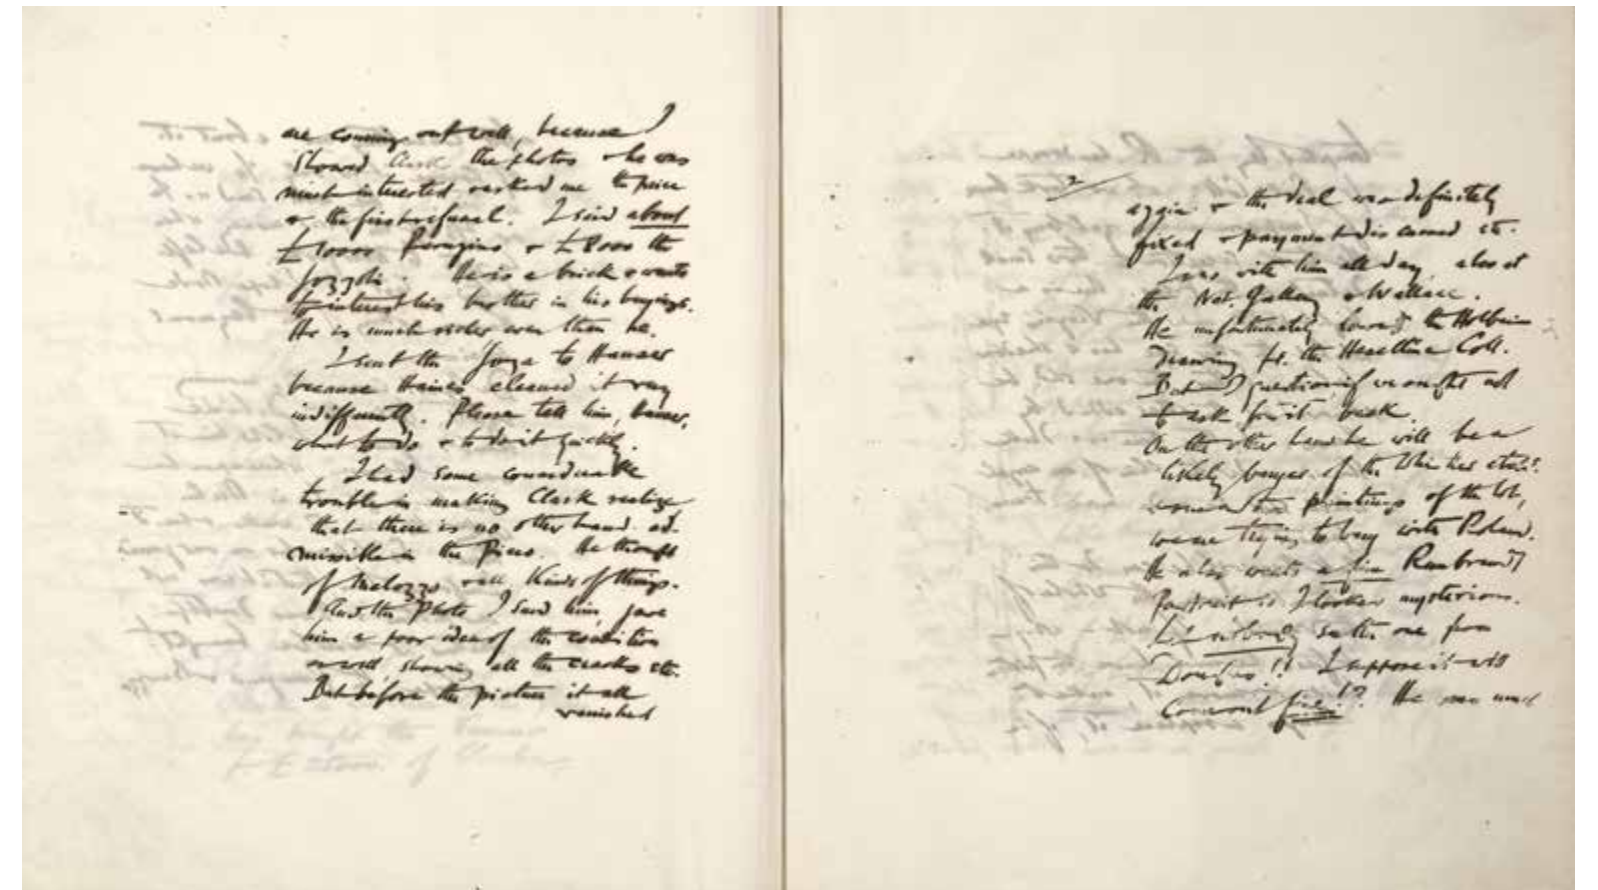 are coming out well, because I
showed Clark the photos & he was
much interested & asked me the price
& the first refusal. I said about
£10000 Perugino & £8000 the
Gozzoli. He is a brick & wants
to interest his brother in his buyings.
He is much richer even than he.
I sent the to Hauser
because Haines cleaned it very
indifferently. Please tell him, Hauser,
what to do & to do it quickly.
I had some considerable
trouble in making Clark realize
that there is no other hand ad-
missible in the Piero. He thought
of Melozzo & all kinds of things.
And the photo I sent him, gave
him a poor idea of the condition
as well, showing all the cracks etc.
But before the picture it all
vanished
2
again & the deal was definitely
fixed & payment discussed etc.
I was with him all day, also at
the Nat. Gallery & Wallace.
He unfortunately the Holbein
Drawing fr. the Heseltine Coll.
But I question if we ought not
to ask for it back.
On the other hand he will be a
likely buyer of the
paintings of the lot,
we are trying to buy with
He also wants a fine Rembrandt
Portrait
so the one from
!! I suppose it will
five!? He